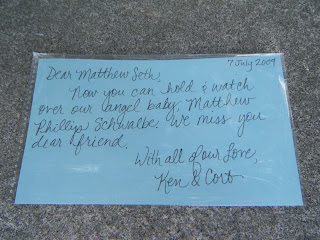 7 July 2009
Dear Matthew Seth,
Now you can hold & watch
over our angel baby, Matthew
Phillip Schwalbe. We miss you
dear friend.
With all of our Love,
Ken & Cort